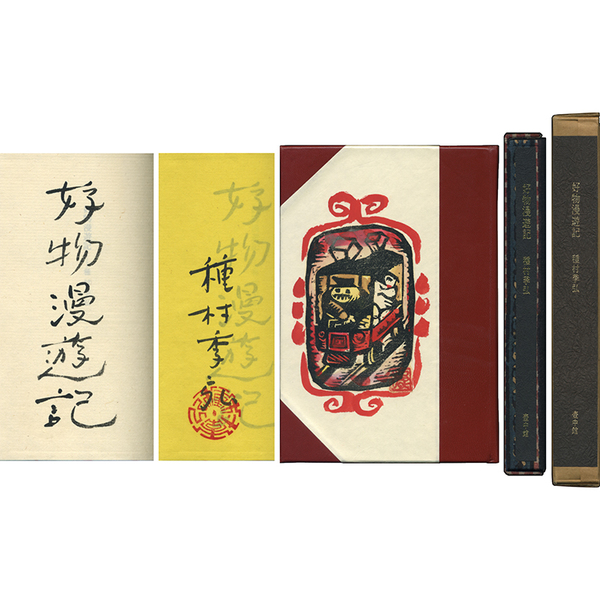 好物漫遊記
種村季弘
好物漫遊記
好物漫遊記 種村季弘
壺中館
好物漫遊記 種村季弘
壺中館